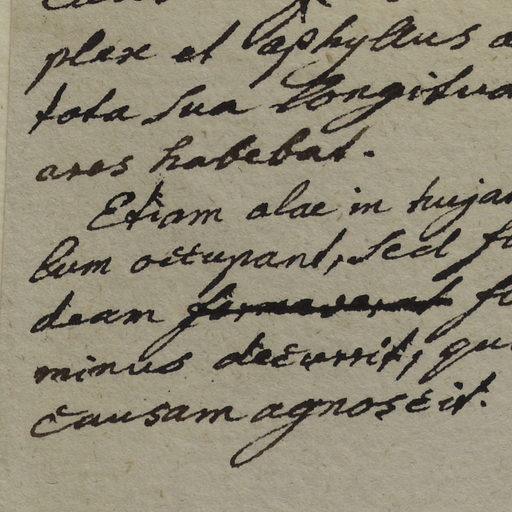 plex et aphyllus a
tota sua longitud
ares habebat.
Etiam alae in hujas
bum occupant, sed fo
deam formaverat fo
minus decurrit, qu
causam agnoscit.